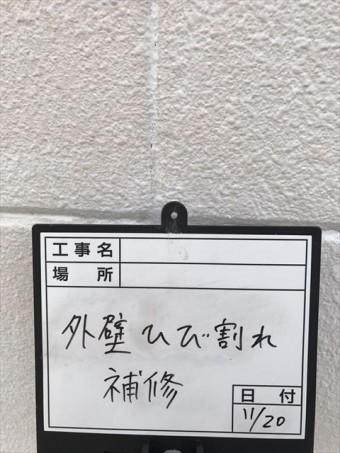 工事名
場所
外壁ひび割れ
補修
日付
11/20